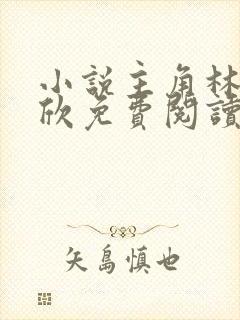 小說主角林
欣免費閱讀
矢島慎也